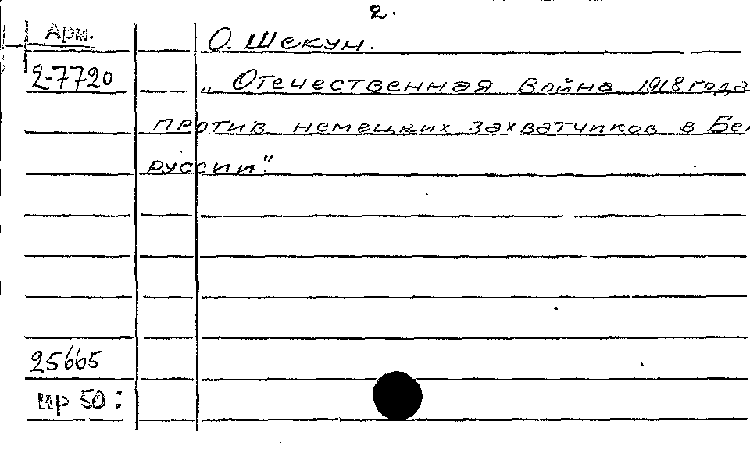 2.
Арм.
О. Шекун.
2-7720
„ Отечественная война 1918 года
против немецких захватчиков в Бе
руссии".
25665
пр 50: